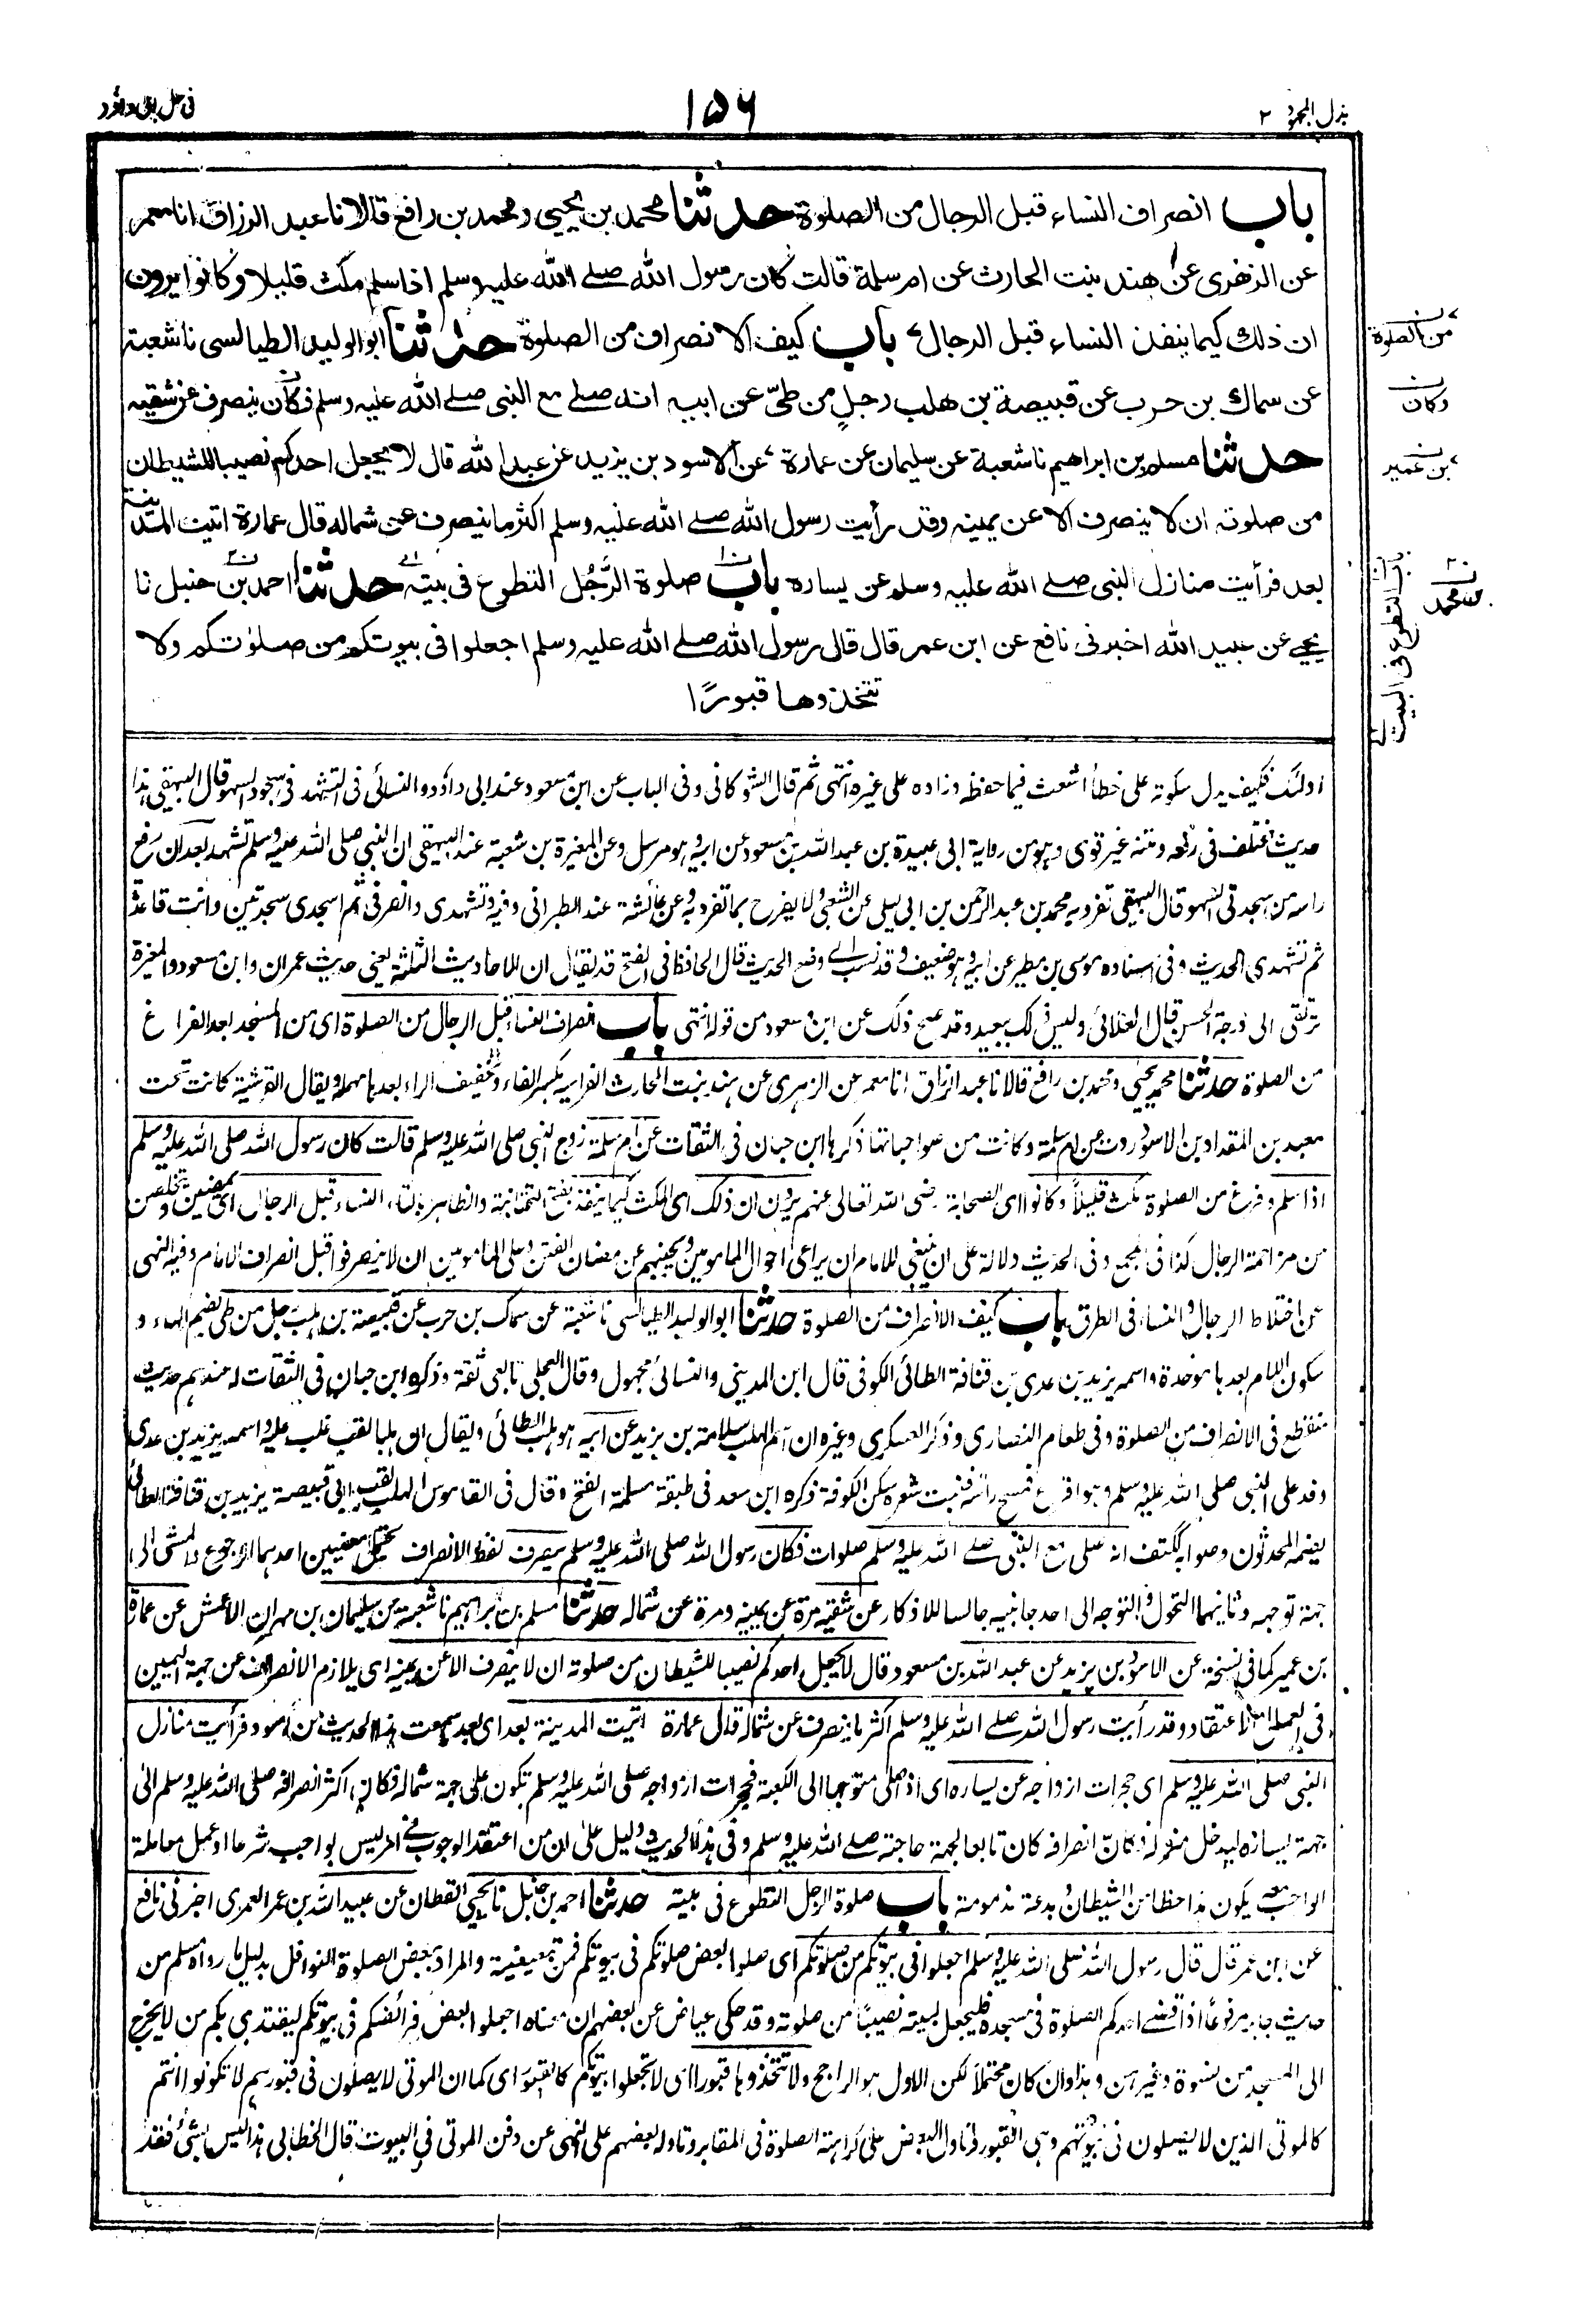 بذل المجهود ٢
١٥٦
في حل ابي داؤد
باب انصراف النساء قبل الرجال من الصلوة حدثنا محمد بن يحيى ومحمد بن رافع قالا نا عبد الرزاق انا معمر
عن الزهرى عن هند بنت الحارث عن ام سلمة قالت كان رسول الله صلى الله عليه وسلم اذا سلم مكث قليلا وكانوا يرون
ان ذلك كيما ينفذ النساء قبل الرجال باب كيف الانصراف من الصلوة حدثنا ابو الوليد الطيالسى نا شعبة
عن سماك بن حرب عن قبيصة بن هلب رجل من طئ عن ابيه انه صلى مع النبى صلى الله عليه وسلم فكان ينصرف عن شقيه
حدثنا مسلم بن ابراهيم نا شعبة عن سليمان عن عمارة عن الاسود بن يزيد عن عبد الله قال لا يجعل احدكم نصيبا للشيطان
من صلوته ان لا ينصرف الا عن يمينه وقد رأيت رسول الله صلى الله عليه وسلم اكثر ما ينصرف عن شماله قال عمارة اتيت المدينة
بعد فرأيت منازل النبى صلى الله عليه وسلم عن يساره باب صلوة الرَّجُل التطوع فى بيته حدثنا احمد بن حنبل نا
يحيى عن عبيد الله اخبرنى نافع عن ابن عمر قال قال رسول الله صلى الله عليه وسلم اجعلوا فى بيوتكم من صلوتكم ولا
تتخذوها قبورًا
من الصلوة
وكان
بن عمير
باب التطوع فى البيت
بن محمد
اولئك فكيف يدل سكوته على خطأ اشعث فيما حفظه وزاده على غيره انتهى ثم قال الشوكانى وفى الباب عن ابن مسعود عند ابى داؤد والنسائى فى التشهد فى سجود السهو قال البيهقى هذا
حديث مختلف فى رفعه ومتنه غير قوى وهو من رواية ابى عبيدة بن عبد الله بن مسعود عن ابيه وهو مرسل وعن المغيرة بن شعبة عند البيهقى ان النبى صلى الله عليه وسلم تشهد بعد ان رفع
راسه من سجدتى السهو قال البيهقى تفرد به محمد بن عبد الرحمن بن ابى ليلى عن الشعبى ولا يفرح بما تفرد به وعن عائشة عند الطبرانى وفيه وتشهدى وانصرفى ثم اسجدى سجدتين وانت قاعدة
ثم تشهدى الحديث وفى اسناده موسى بن مطير عن ابيه وهو ضعيف وقد نسب الى وضع الحديث قال الحافظ فى الفتح قد يقال ان للاحاديث الثلثة يعنى حديث عمران وابن مسعود والمغيرة
ترتقى الى درجة الحسن قال العلائى وليس ذلك ببعيد وقد صح ذلك عن ابن مسعود من قوله انتهى باب انصراف النساء قبل الرجال من الصلوة اى من المسجد بعد الفراغ
من الصلوة حدثنا محمد بن يحيى ومحمد بن رافع قالا نا عبد الرزاق انا معمر عن الزهرى عن هند بنت الحارث الفراسية بكسر الفاء وتخفيف الراء بعدها مهملة ويقال القرشية كانت تحت
معبد بن المقداد بن الاسود روت عن ام سلمة وكانت من صواحباتها ذكرها ابن حبان فى الثقات عن ام سلمة زوج النبى صلى الله عليه وسلم قالت كان رسول الله صلى الله عليه وسلم
اذا سلم وفرغ من الصلوة مكث قليلاً وكانوا اى الصحابة رضى الله تعالى عنهم يرون ان ذلك اى المكث كيما ينفذ بفتح التحتانية والظاهر بالتاء النساء قبل الرجال اى يمضين ويتخلصن
من مزاحمة الرجال كذا فى المجمع وفى الحديث دلالة على ان ينبغى للامام ان يراعى احوال المامومين ويجنبهم عن مظان الفتن وعلى المامومين ان لا ينصرفوا قبل انصراف الامام وفيه النهى
عن اختلاط الرجال والنساء فى الطرق باب كيف الانصراف من الصلوة حدثنا ابو الوليد الطيالسى نا شعبة عن سماك بن حرب عن قبيصة بن هلب رجل من طى بضم الهاء و
سكون اللام بعدها موحدة واسمه يزيد بن عدى بن قنافة الطائى الكوفى قال ابن المدينى والنسائى مجهول وقال العجلى تابعى ثقة وذكره ابن حبان فى الثقات له عندهم حديث
منقطع فى الانصراف من الصلوة وفى طعام النصارى وذكر العسكرى وغيره ان اسم الهلب سلامة بن يزيد عن ابيه هو هلب الطائى ويقال ان هلبا لقب غلب عليه واسمه يزيد بن عدى
وفد على النبى صلى الله عليه وسلم وهو اقرع فمسح رأسه فنبت شعره سكن الكوفة ذكره ابن سعد فى طبقة مسلمة الفتح وقال فى القاموس الهلب لقب ابى قبيصة يزيد بن قنافة الطائى
يضمه المحدثون وصوابه ككتف انه صلى مع النبى صلى الله عليه وسلم صلوات فكان رسول الله صلى الله عليه وسلم ينصرف لفظ الانصراف يحتمل معنيين احدهما الرجوع والمشى الى
جهة توجهه وثانيهما التحول والتوجه الى احد جانبيه جالسا للاذكار عن شقيه مرة عن يمينه ومرة عن شماله حدثنا مسلم بن ابراهيم نا شعبة عن سليمان بن مهران الاعمش عن عمارة
بن عمير كما فى نسخة عن الاسود بن يزيد عن عبد الله بن مسعود قال لا يجعل احدكم نصيبا للشيطان من صلوته ان لا ينصرف الا عن يمينه اى يلازم الانصراف عن جهة اليمين
فى العمل مع الاعتقاد وقد رأيت رسول الله صلى الله عليه وسلم اكثر ما ينصرف عن شماله قال عمارة اتيت المدينة بعد اى بعد سمعت هذا الحديث من اسود فرأيت منازل
النبى صلى الله عليه وسلم اى حجرات ازواجه عن يساره اى اذا صلى متوجها الى الكعبة فحجرات ازواجه صلى الله عليه وسلم تكون على جهة شماله فكان اكثر انصرافه صلى الله عليه وسلم الى
جهة يساره ليدخل منزله فكان انصرافه كان تابعا لجهة حاجته صلى الله عليه وسلم وفى هذا الحديث دليل على ان من اعتقد الوجوب فى امر ليس بواجب شرعا او عمل معاملة
الواجب معه يكون هذا حظا من الشيطان وبدعة مذمومة باب صلوة الرجل التطوع فى بيته حدثنا احمد بن حنبل نا يحيى القطان عن عبيد الله بن عمر العمرى اخبرنى نافع
عن ابن عمر قال قال رسول الله صلى الله عليه وسلم اجعلوا فى بيوتكم من صلوتكم اى صلوا بعض صلوتكم فى بيوتكم فمن تبعيضية والمراد ببعض الصلوة النوافل بدليل ما رواه مسلم من
حديث جابر مرفوعاً اذا قضى احدكم الصلوة فى مسجده فليجعل لبيته نصيباً من صلوته وقد حكى عياض عن بعضهم ان معناه اجعلوا بعض فرائضكم فى بيوتكم ليقتدى بكم من لا يخرج
الى المسجد من نسوة وغيرهن وهذا وان كان محتملاً لكن الاول هو الراجح ولا تتخذوها قبورا اى لا تجعلوا بيوتكم كالقبور اى كما ان الموتى لا يصلون فى قبورهم لا تكونوا انتم
كالموتى الذين لا يصلون فى بيوتهم وهى القبور وتاول البعض على كراهة الصلوة فى المقابر وتاوله بعضهم على النهى عن دفن الموتى فى البيوت قال الخطابى هذا ليس بشئ فقد